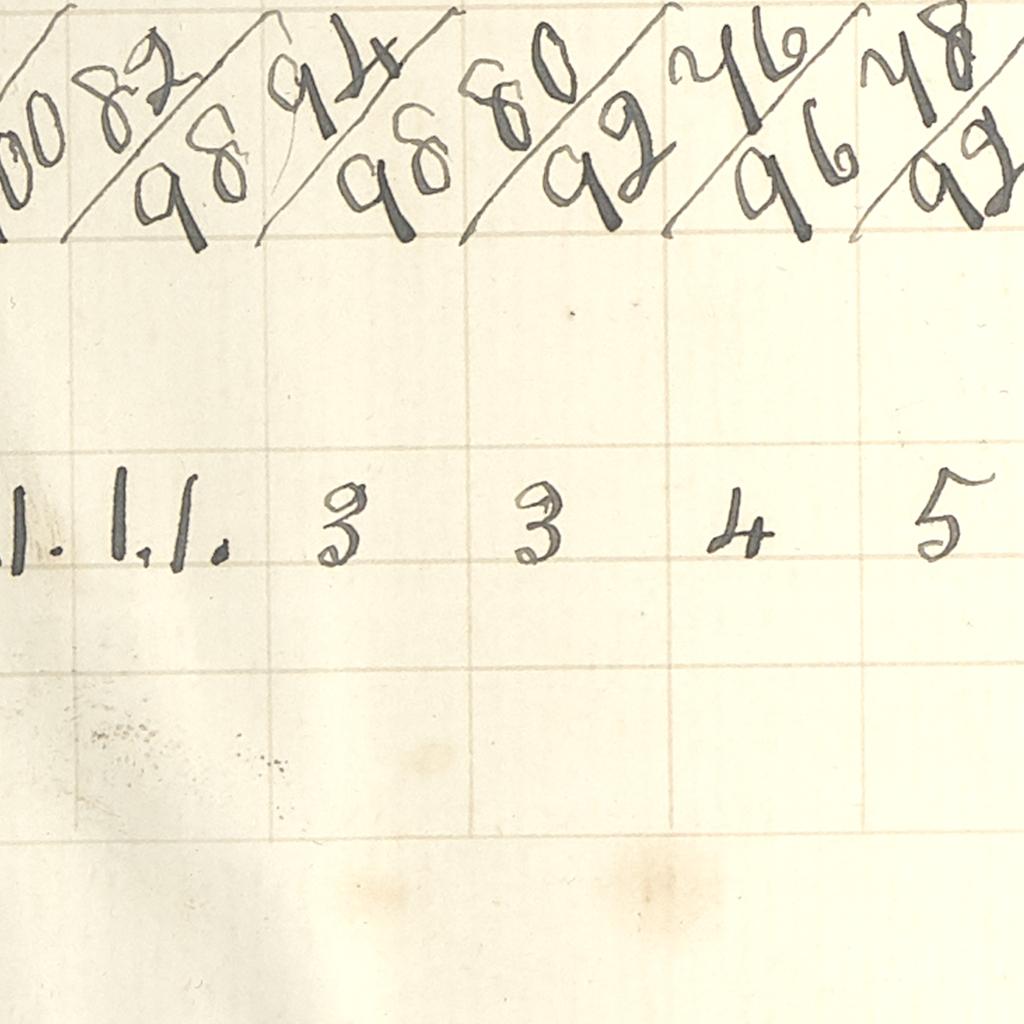 00 82/98 94/98 80/92 76/96 78/92
1. 1.1. 3 3 4 5